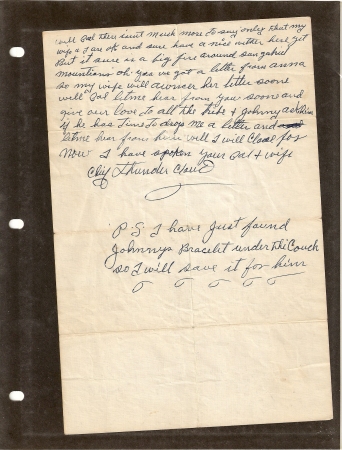 well Pal there isint much more to say only that my
wife & I are ok and sure have a nice wether here yet
But it sure is a big fire around san gabriel
mountians oh yes ive got a letter from anna
so my wife will awnser her letter soone
well Pal letme hear from you soone and
give our love to all the tribe & Johnny ask him
if he has Time To drop me a letter and
letme hear from him well I will Close for
Now I have spoken your Pal & wife
Chief Thunder Cloud
P.S. I have Just found
Johnnys Bracelet under The Couch
so I will save it for him